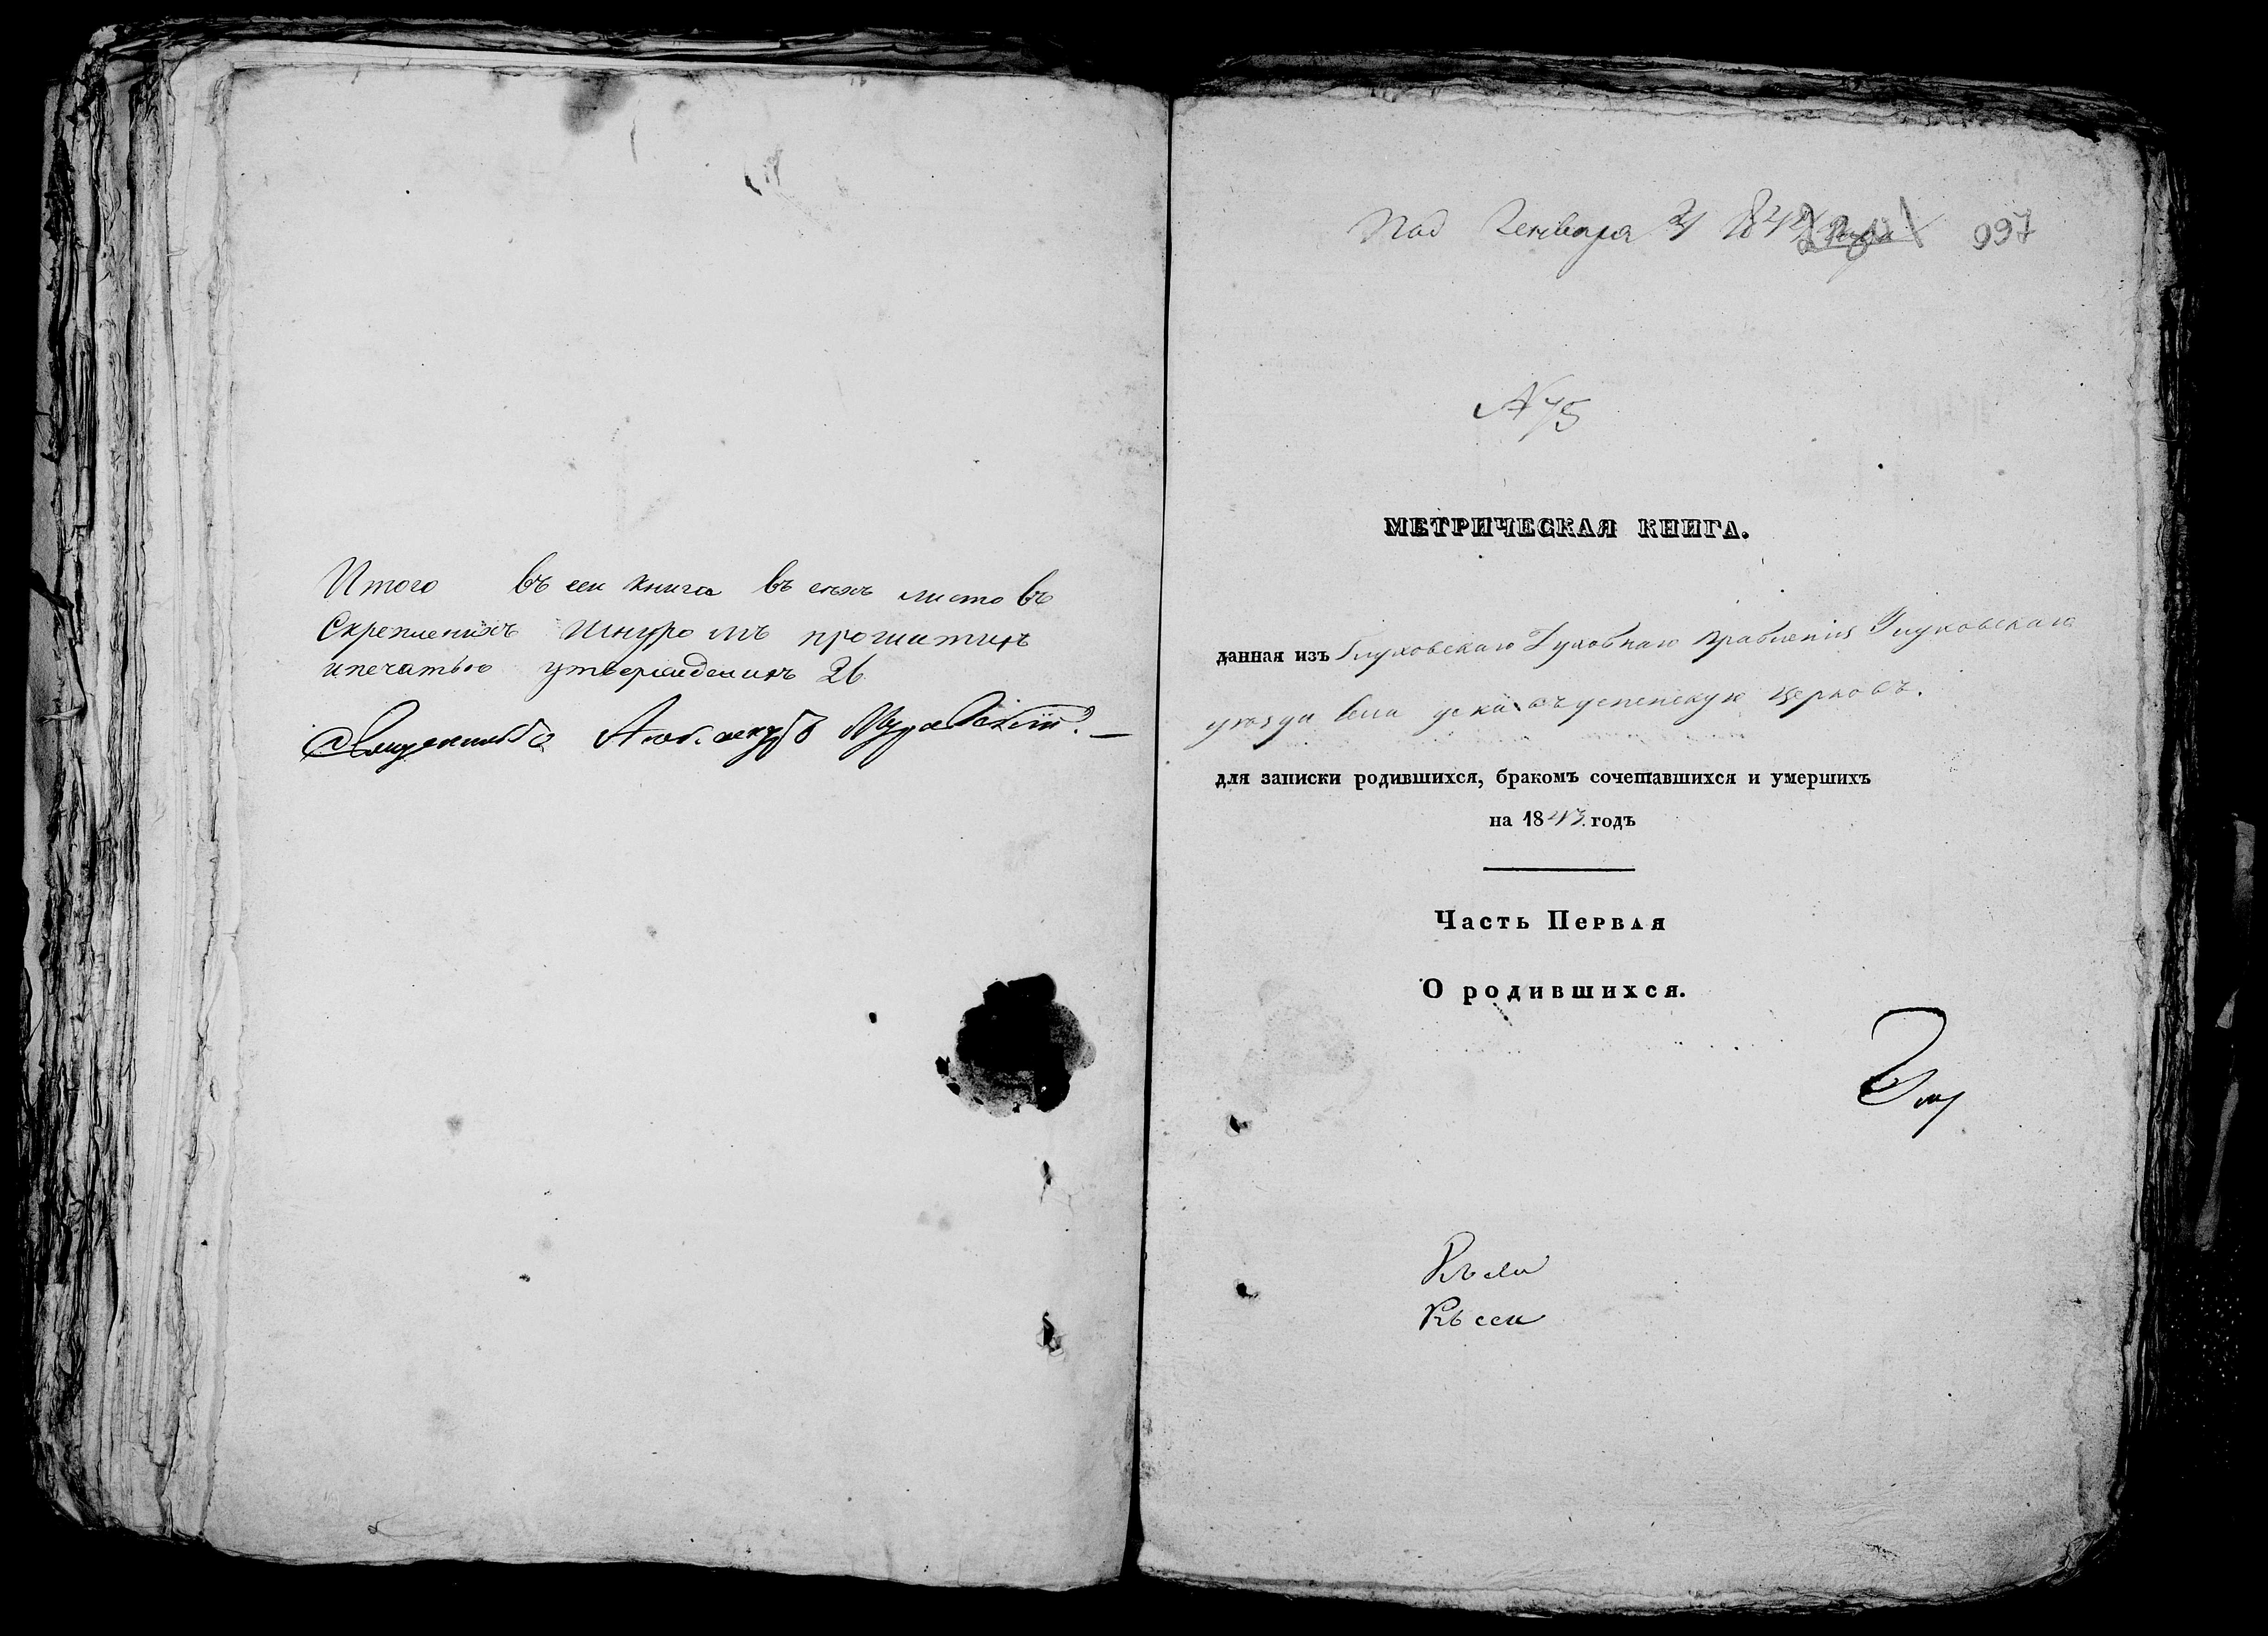 Итого въ сей книга въ сѣхъ листовъ
Скрепленихъ Шнуромъ прошитихъ
ипечатью утвержденихъ 26
Священникъ Александръ
Под Генваря 21 184
997
№ 75
МЕТРИЧЕСКАЯ КНИГА.
данная изъ Глуховскаго Духовнаго правленія Глуховскаго
уѣзда въ успенскую церковъ.
для записки родившихся, бракомъ сочетавшихся и умершихъ
на 1843. годъ
Часть Первая
О родившихся.
Къ сей